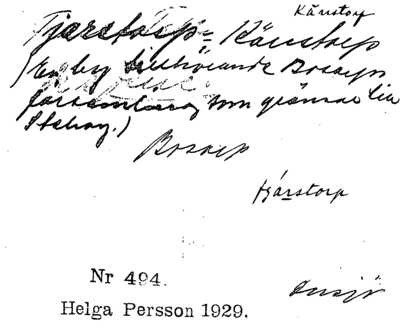 Kärrstorp
Tjärstorp = Kärrstorp
(En by tillhörande Bosarps
församling som gränsar till
Stehag.)
Bosarp
Tjärstorp
Nr 494.
Onsjö
Helga Persson 1929.